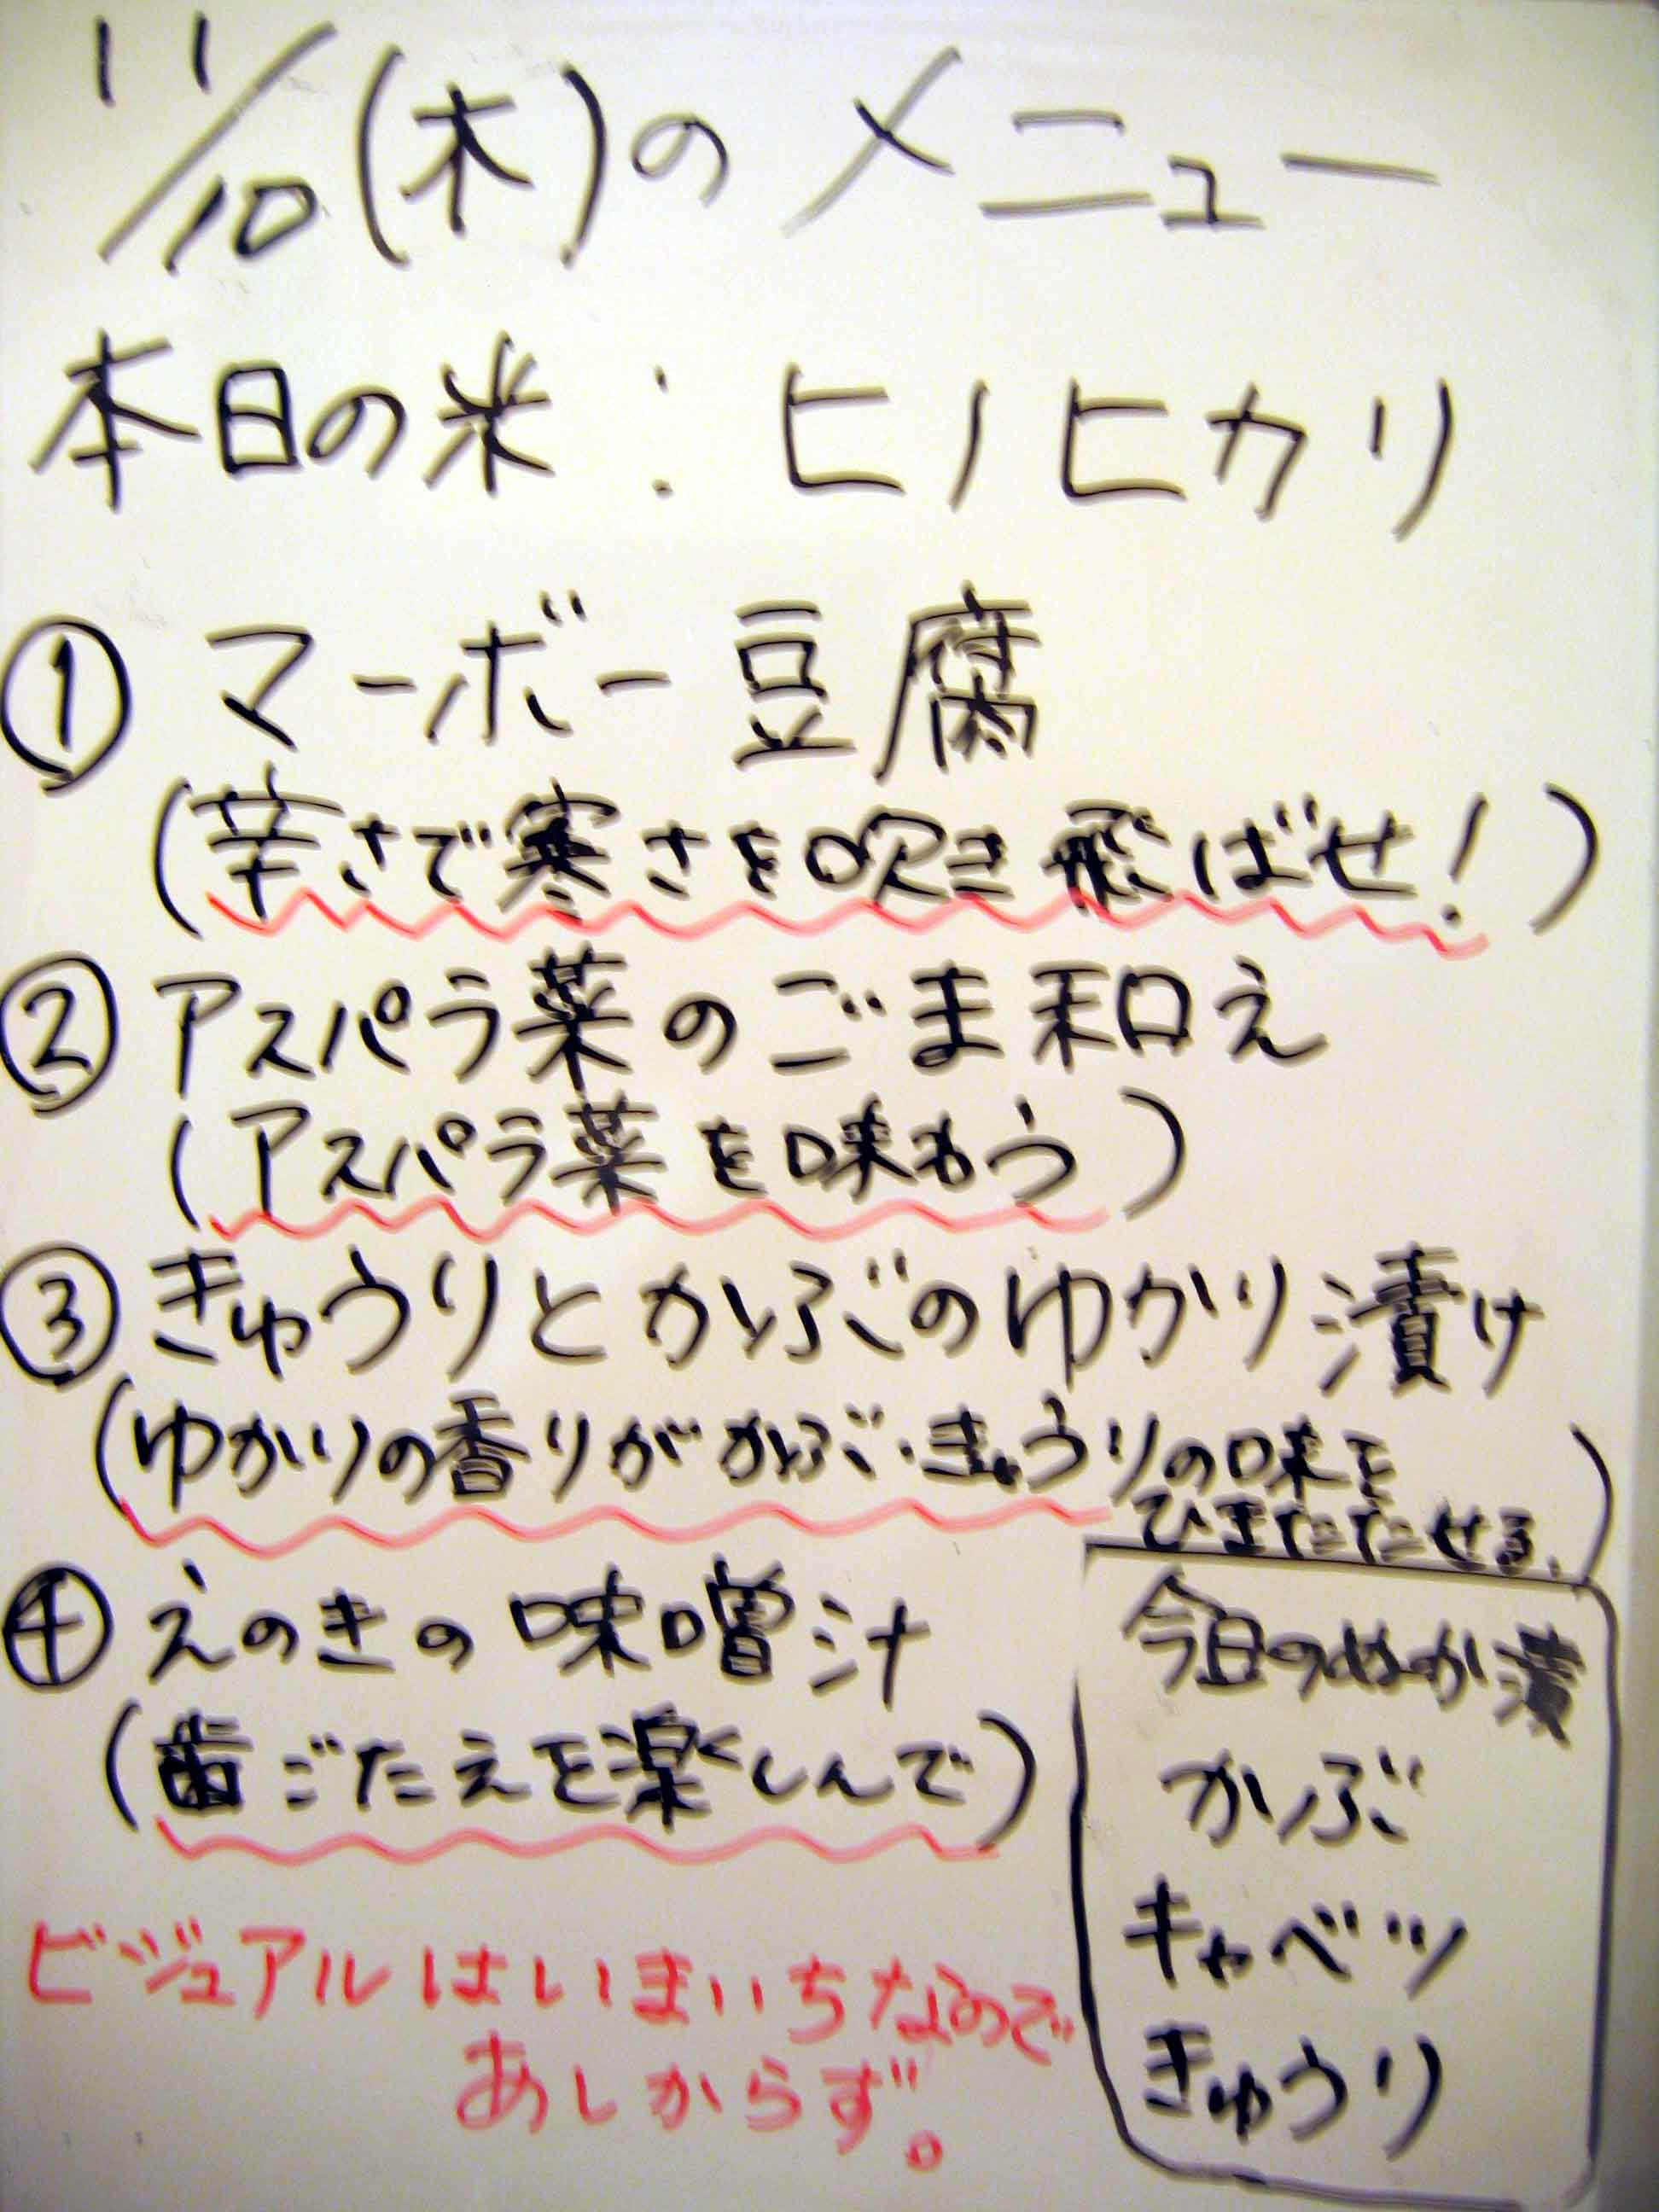 11/10(木)のメニュー
本日の米:ヒノヒカリ
① マーボー豆腐
(辛さで寒さを吹き飛ばせ!)
② アスパラ菜のごま和え
(アスパラ菜を味わう)
③ きゅうりとかぶのゆかり漬け
(ゆかりの香りがかぶ・きゅうりの味を
ひきたたせる。)
④ えのきの味噌汁
(歯ごたえを楽しんで)
今日のぬか漬
かぶ
キャベツ
きゅうり
ビジュアルはいまいちなので
あしからず。